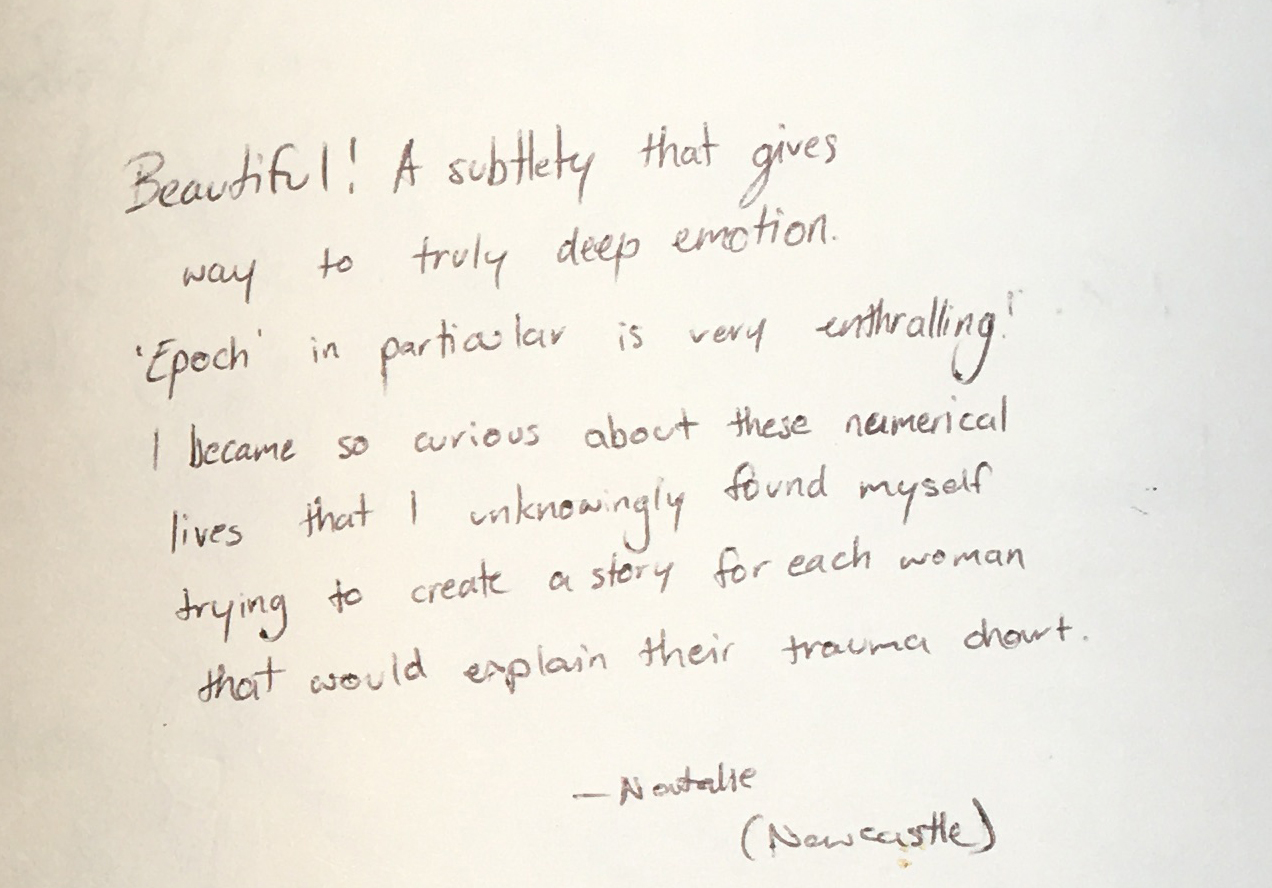 Beautiful! A subtlety that gives
way to truly deep emotion.
'Epoch' in particular is very enthralling!
I became so curious about these numerical
lives that I unknowingly found myself
trying to create a story for each woman
that would explain their trauma chart.
— Natalie
(Newcastle)